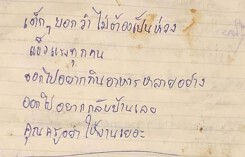 เด็กๆ บอกว่า ไม่ต้องเป็นห่วง
แข็งแรงทุกคน
ออกไปอยากกินอาหารหลายอย่าง
ออกไปอยากกลับบ้านเลย
คุณครูอย่าให้งานเยอะ